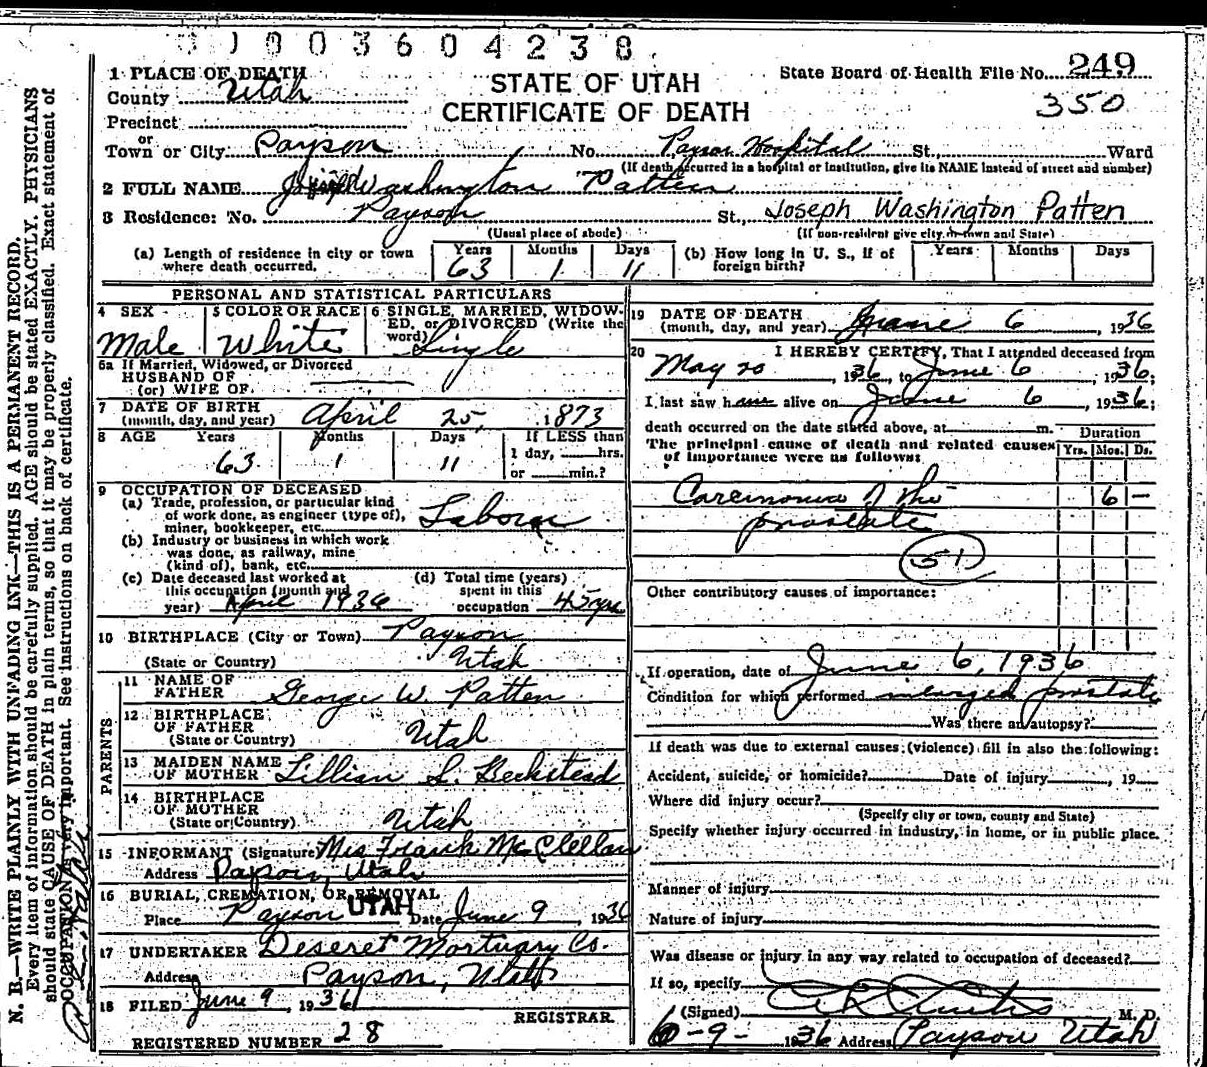 003604238
1 PLACE OF DEATH
County Utah
Precinct
or
Town or City Payson No. Payson Hospital St., Ward
STATE OF UTAH
CERTIFICATE OF DEATH
State Board of Health File No. 249
350
(If death occurred in a hospital or institution, give its NAME instead of street and number)
2 FULL NAME Joseph Washington Patten
3 Residence: No. Payson St., Joseph Washington Patten
(Usual place of abode) (If non-resident give city or town and State)
(a) Length of residence in city or town where death occurred. Years 63 Months 1 Days 11
(b) How long in U. S., if of foreign birth? Years Months Days
PERSONAL AND STATISTICAL PARTICULARS
4 SEX Male
5 COLOR OR RACE White
6 SINGLE, MARRIED, WIDOWED, or DIVORCED (Write the word) Single
6a If Married, Widowed, or Divorced
HUSBAND OF
(or) WIFE OF
7 DATE OF BIRTH
(month, day, and year) April 25, 1873
8 AGE Years 63 Months 1 Days 11 If LESS than 1 day, hrs. or min.?
9 OCCUPATION OF DECEASED
(a) Trade, profession, or particular kind of work done, as engineer (type of), miner, bookkeeper, etc. Laborer
(b) Industry or business in which work was done, as railway, mine (kind of), bank, etc.
(c) Date deceased last worked at this occupation (month and year) April 1936
(d) Total time (years) spent in this occupation 45 yrs
10 BIRTHPLACE (City or Town) Payson
(State or Country) Utah
PARENTS
11 NAME OF FATHER George W. Patten
12 BIRTHPLACE OF FATHER
(State or Country) Utah
13 MAIDEN NAME OF MOTHER Lillian L. Beckstead
14 BIRTHPLACE OF MOTHER
(State or Country) Utah
15 INFORMANT (Signature) Mrs Frank McClellan
Address Payson, Utah
16 BURIAL, CREMATION, OR REMOVAL
Place Payson UTAH Date June 9, 1936
17 UNDERTAKER Deseret Mortuary Co.
Address Payson, Utah
18 FILED June 9, 1936
REGISTRAR
REGISTERED NUMBER 28
19 DATE OF DEATH
(month, day, and year) June 6, 1936
20 I HEREBY CERTIFY, That I attended deceased from
May 20, 1936, to June 6, 1936;
I last saw h alive on June 6, 1936;
death occurred on the date stated above, at m.
The principal cause of death and related causes of importance were as follows:
Duration
Yrs. Mos. Ds.
Carcinoma of the 6 –
prostate
51
Other contributory causes of importance:
If operation, date of June 6, 1936
Condition for which performed enlarged prostate
Was there an autopsy?
If death was due to external causes (violence) fill in also the following:
Accident, suicide, or homicide? Date of injury, 19
Where did injury occur?
(Specify city or town, county and State)
Specify whether injury occurred in industry, in home, or in public place.
Manner of injury
Nature of injury
Was disease or injury in any way related to occupation of deceased?
If so, specify
(Signed) Curtis M. D.
6-9-1936 Address Payson Utah
N. B.—WRITE PLAINLY WITH UNFADING INK—THIS IS A PERMANENT RECORD.
Every item of information should be carefully supplied. AGE should be stated EXACTLY. PHYSICIANS
should state CAUSE OF DEATH in plain terms, so that it may be properly classified. Exact statement of
OCCUPATION is very important. See instructions on back of certificate.